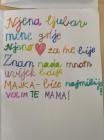 Njena ljubav
mene grije
Njeno ♥ za me bije
Znam nada mnom
uvijek bdije
MAJKA - biće najmilije
VOLIM TE MAMA!